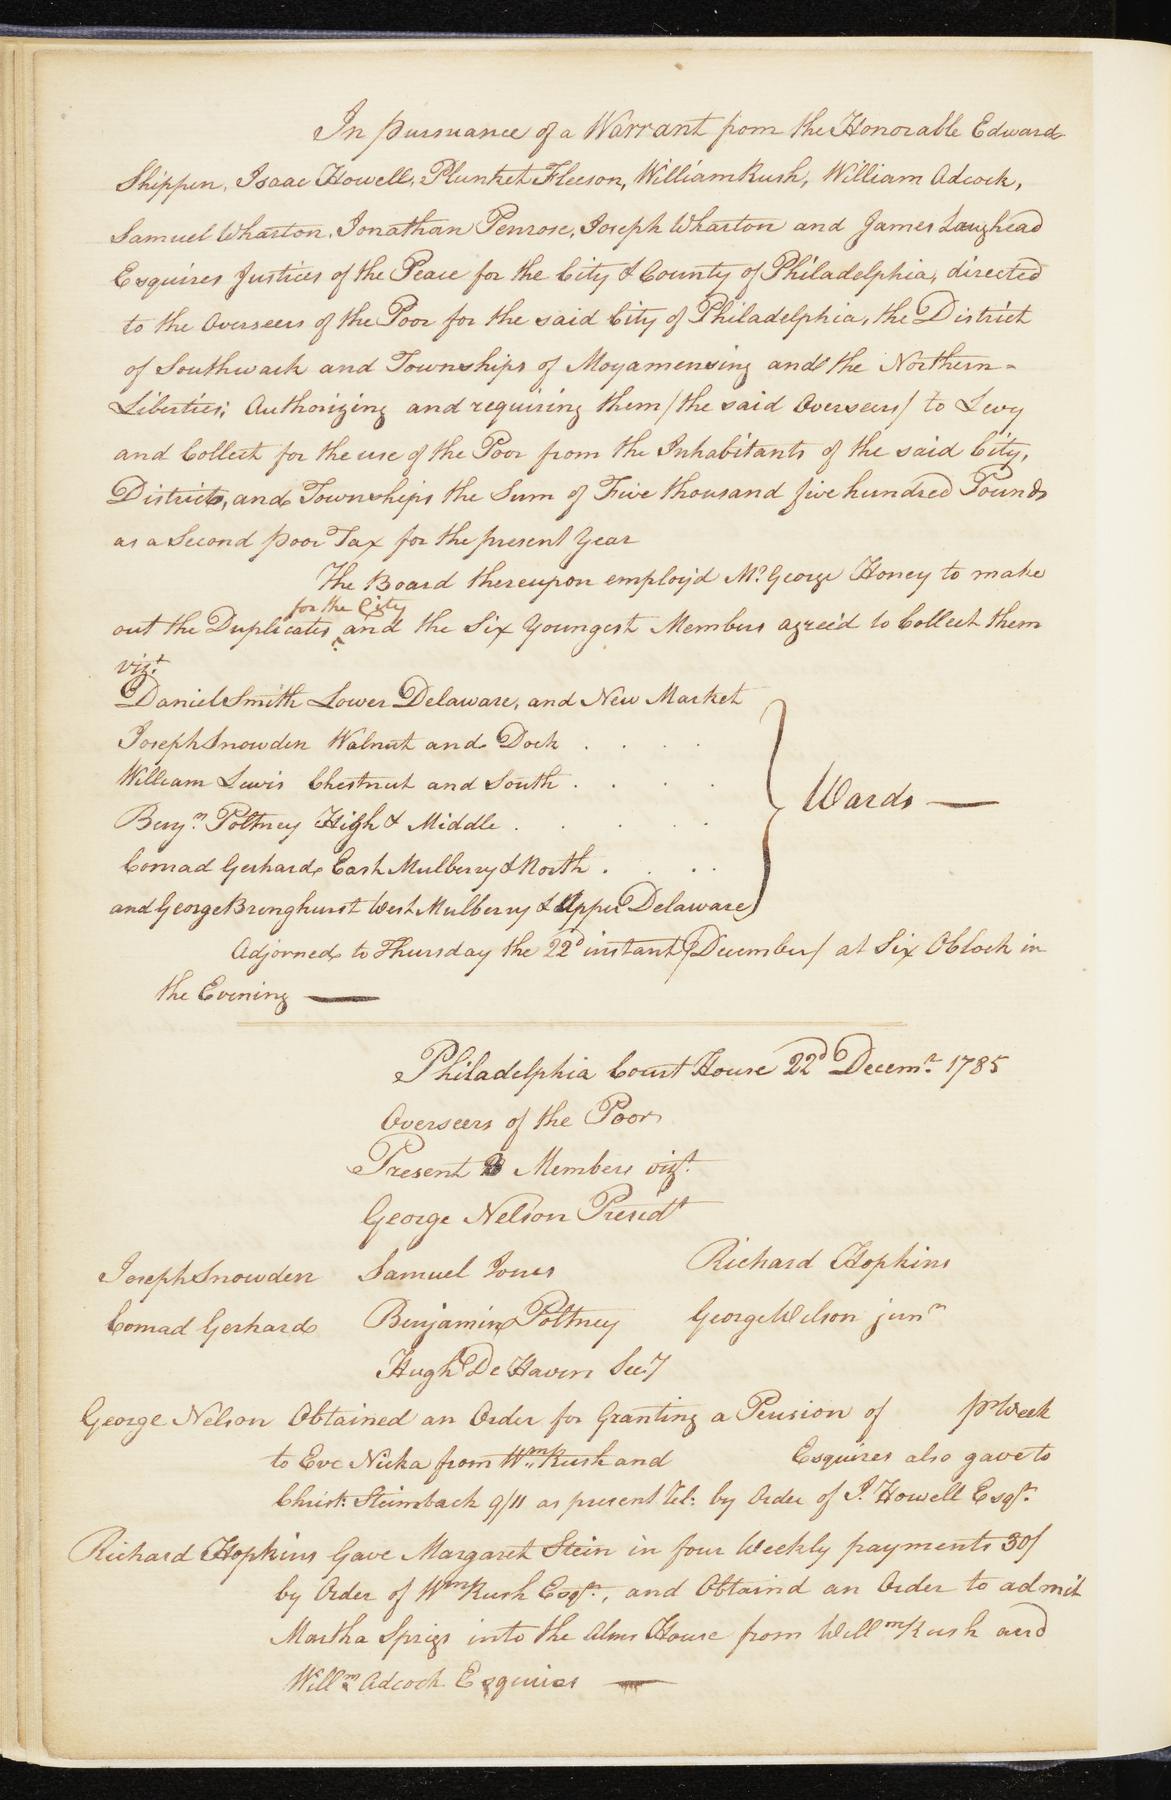 In pursuance of a Warrant from the Honorable Edward
Shippen, Isaac Howell, Plunket Fleeson, William Rush, William Adcock,
Samuel Wharton, Jonathan Penrose, Joseph Wharton and James Laughead
Esquires Justices of the Peace for the City & County of Philadelphia, directed
to the Overseers of the Poor for the said City of Philadelphia, the District
of Southwark and Townships of Moyamensing and the Northern-
Liberties; Authorizing and requiring them/the said Overseers/ to Levy
and Collect for the use of the Poor from the Inhabitants of the said City,
Districts, and Townships the Sum of Five thousand five hundred Pounds
as a Second poor Tax for the present Year
The Board thereupon employ'd Mr. George Honey to make
for the City
out the Duplicates ^ and the Six Youngest Members agree'd to Collect them
vizt.
Daniel Smith Lower Delaware, and New Market
Joseph Snowden Walnut and Dock . . . .
William Lewis Chestnut and South . . . .
Benjn. Poltney High & Middle . . . .
Conrad Gerhard East Mulberry & North . . . .
and George Bringhurst West Mulberry & Upper Delaware
} Wards —
Adjorned to Thursday the 22d instant/December/ at Six OClock in
the Evening —
Philadelphia Court House 22d Decemr. 1785
Overseers of the Poor
Present 8 Members vizt.
George Nelson Presidt
Joseph Snowden Samuel Jones Richard Hopkins
Conrad Gerhard Benjamin Poltney George Wilson junr
Hugh De Haven Secy
George Nelson Obtained an Order for Granting a Pension of pr Week
to Eve Nicka from Wm. Rush and Esquires also gave to
Christ: Steinsback 9/11 as present rel: by Order of I. Howell Esqr.
Richard Hopkins Gave Margaret Stein in four Weekly payments 30/
by Order of Wm Rush Esqr., and Obtaind an Order to admit
Martha Sprigs into the Alms House from Willm Rush and
Willm. Adcock Esquires —